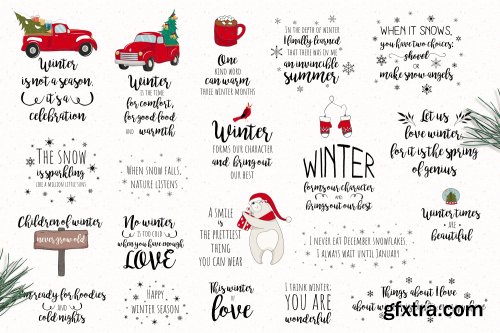 Winter
is not a season,
it's a
celebration
Winter
IS THE TIME
for comfort,
for good food
AND warmth
One
KIND WORD
can warm
THREE WINTER MONTHS
IN THE DEPTH OF WINTER
I finally learned
THAT THERE WAS IN ME
an invincible
SUMMER
WHEN IT SNOWS,
you have two choices:
shovel
OR
make snow angels
THE SNOW
is sparkling
LIKE A MILLION LITTLE SUNS
WHEN SNOW FALLS,
NATURE LISTENS
Winter
FORMS OUR CHARACTER
AND bring out
OUR BEST
WINTER
forms our character
AND
brings out our best
Let us
love winter
for it is the spring
of genius
Children of winter
never grow old
No winter
IS TOO COLD
when you have enough
LOVE
A SMILE
IS THE
PRETTIEST
THING
YOU CAN WEAR
Winter times
ARE
beautiful
I NEVER EAT DECEMBER SNOWFLAKES.
I ALWAYS WAIT UNTIL JANUARY
I'm ready for hoodies
AND
cold nights
Happy
WINTER SEASON
This winter
of
love
I THINK WINTER:
YOU ARE
wonderful
Things about I love
about
gfxtra.com